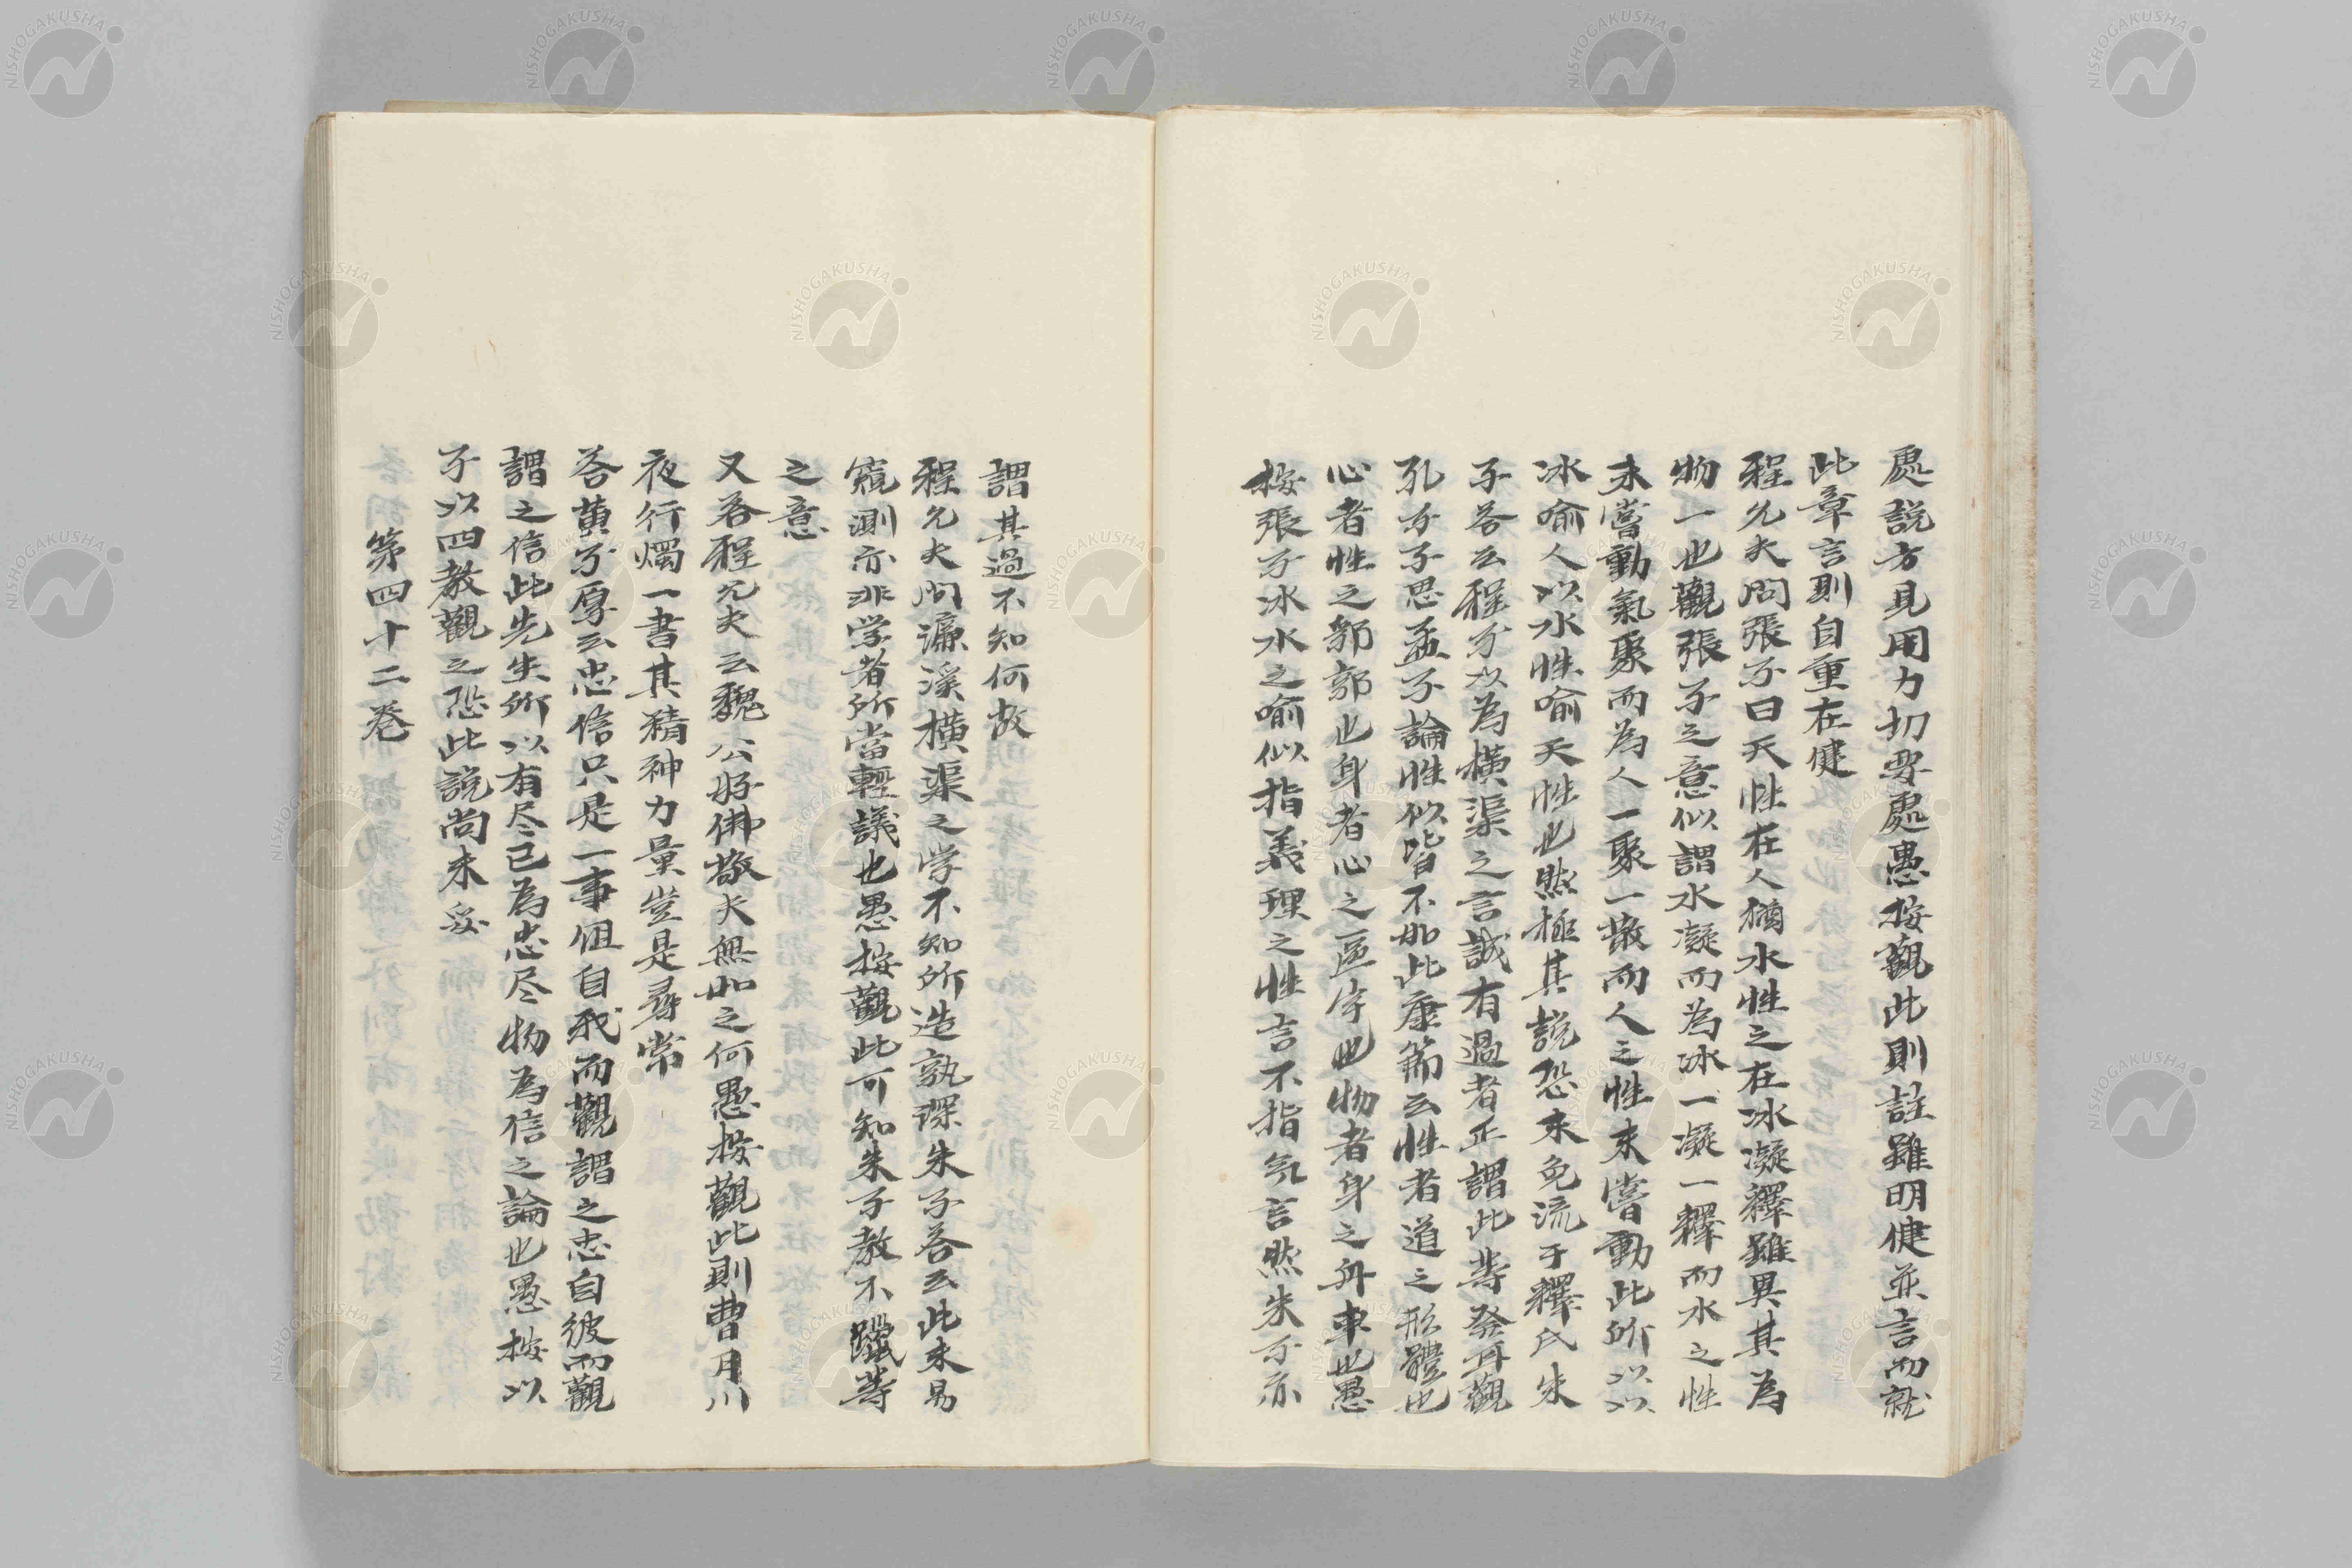 處説方見用力切要處愚按觀此則註雖明健並言而就
此章言則自重在健
程允夫問張子曰天性在人猶水性之在冰凝釋雖異其為
物一也觀張子之意似謂水凝而為冰一凝一釋而水之性
未嘗動氣聚而為人一聚一散而人之性未嘗動此所以以
冰喻人以水性喻天性也然極其説恐未免流于釋氏朱
子答云程子以為橫渠之言誠有過者正謂此等發耳觀
孔子子思孟子論性似皆不如此康節云性者道之形體也
心者性之郛郭也身者心之區宇也物者身之舟車也愚
按張子冰水之喻似指義理之性言不指気言然朱子亦
謂其過不知何故
程允夫問濂溪橫渠之学不知所造孰深朱子答云此未易
窺測亦非学者所當輕議也愚按觀此可知朱子教不躐等
之意
又答程允夫云魏公好佛敬夫無如之何愚按觀此則曹月川
夜行燭一書其精神力量豈是尋常
答黄子厚云忠信只是一事但自我而觀謂之忠自彼而觀
謂之信此先生所以有尽己為忠尽物為信之論也愚按以
子以四教觀之恐此説尚未妥
第四十二卷
NISHOGAKUSHA